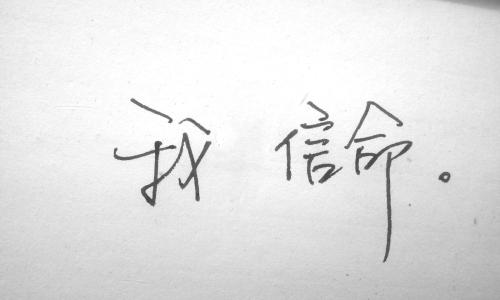 我 信命。